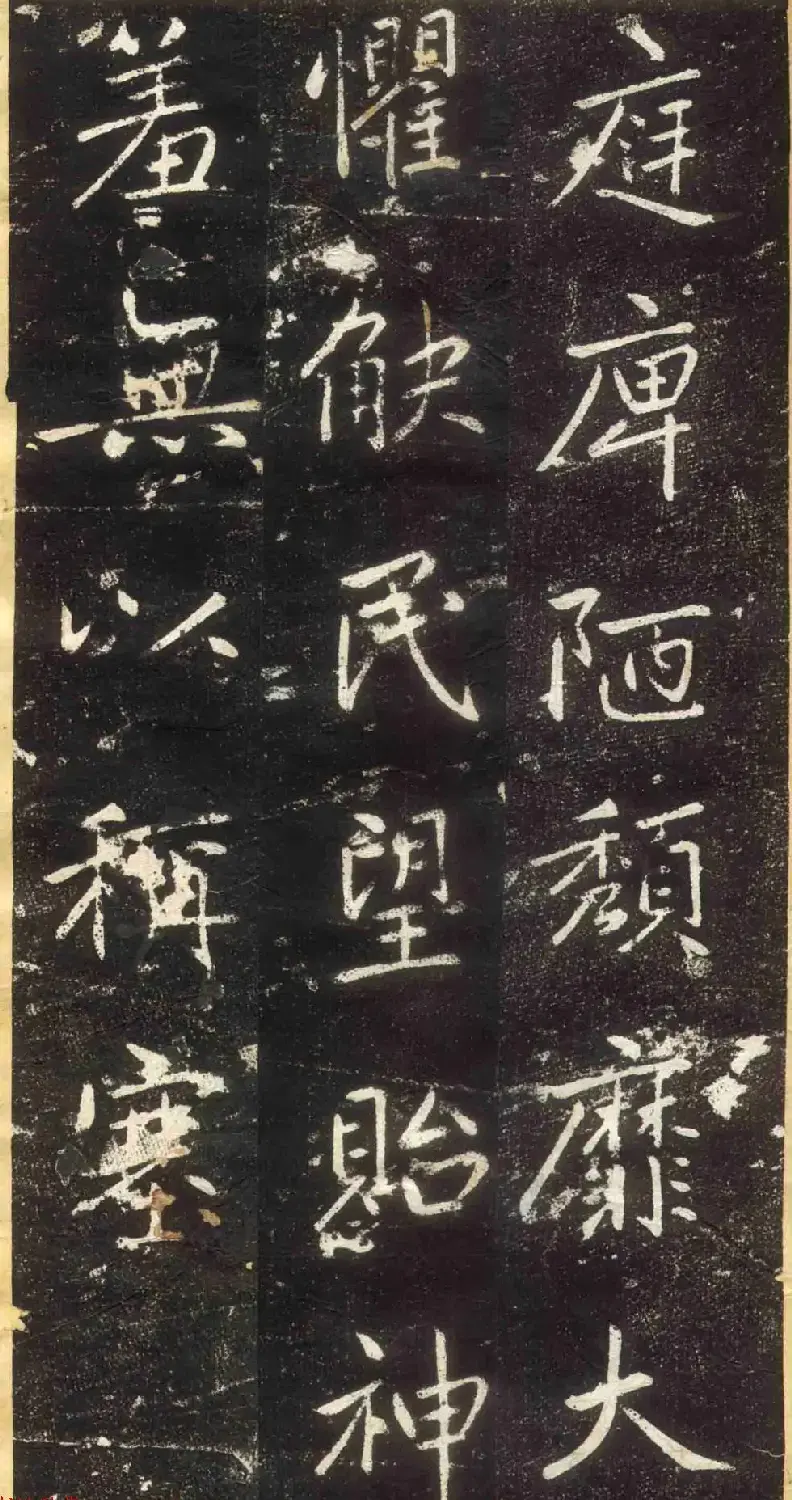 庭庳陋頹靡大
懼觖民望貽神
羞無以稱塞